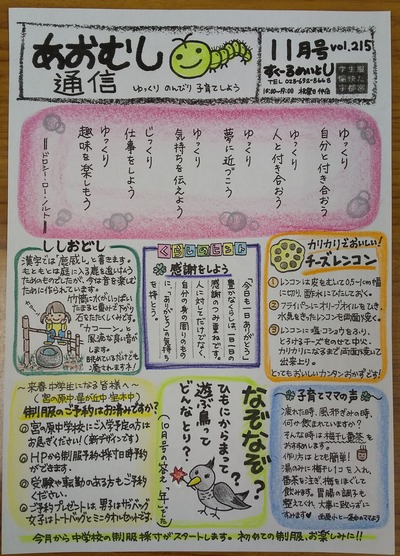 あおむし
通信
ゆっくり のんびり 子育てしよう
11月号 vol.215
すくーるめいとU
学生服
愉快だ
宇都宮
ゆっくり
自分と付き合おう
ゆっくり
人と付き合おう
ゆっくり
夢に近づこう
ゆっくり
気持ちを伝えよう
じっくり
仕事をしよう
ゆっくり
趣味を楽しもう
ドロシー・ロー・ノルト
ししおどし
漢字では「鹿威し」と書きます。
もともとは庭に入る鹿を追い払う
ためのものでしたが、今は音を楽しむ
ために作られています。
竹筒に水がいっぱい
たまると重みで下がり
石をたたくしくみです。
「カコーン」と
風流な良い音が
します。
眺めているだけでも
癒されますネ!
くらしのヒント
感謝をしよう
「今日も一日ありがとう」
豊かなくらしは、一日一日の
感謝のつみ重ねです。
人に対してだけでなく、
自分の身の周りのもの
に、「ありがとう」の気持ち
を持とう。
カリカリでおいしい!
チーズレンコン
①レンコンは皮をむいて0.5~1cm幅
に切り、酢水にひたしておく。
②フライパンにオリーブオイルをひき、
水気をきったレンコンを両面焼く。
③レンコンに塩・コショウをふり、
とろけるチーズをのせて中火、
カリカリになるまで両面焼いて
出来上り。
とってもおいしいカンタンおかずです!
~来春中学生になる皆様へ~
(宮の原中・星が丘中・宝木中)
制服のご予約はお済みですか?
◎宮の原中学校にご入学予定の方は
お急ぎください!(新デザインです)
◎HPから制服予約・採寸日時予約
ができます。
◎受験や転勤のある方もご予約
ください。
◎ご予約プレゼントは、男子はサブバッグ、
女子はトートバッグとミニタオルセットです。
なぞなぞ?
ひもにからまって
遊ぶ鳥って
どんなとり?
10月号の答え
子育てママの声
疲れた時、風邪ぎみの時、
何か飲まれていますか?
そんな時は梅干し番茶を
おすすめします。
作り方はとても簡単!
湯のみに梅干し1コを入れ、
番茶を注ぎ、梅をほぐして
飲みます。胃腸の調子も
整えてくれ、大事に至らずに
すみますヨ
今月から中学校の制服採寸がスタートします。初めての制服、お楽しみに!!